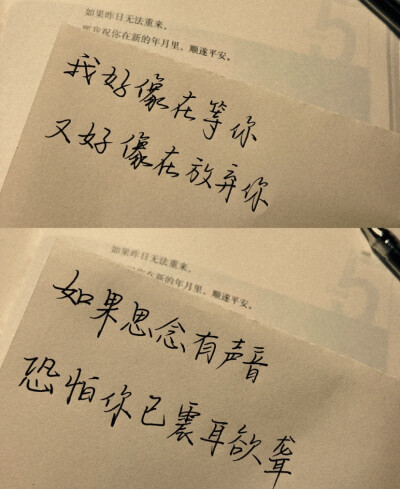 如果昨日无法重来,
祝你在新的年月里、顺遂平安。
我好像在等你
又好像在放弃你
如果昨日无法重来,
在新的年月里、顺遂平安。
如果思念有声音
恐怕你已震耳欲聋